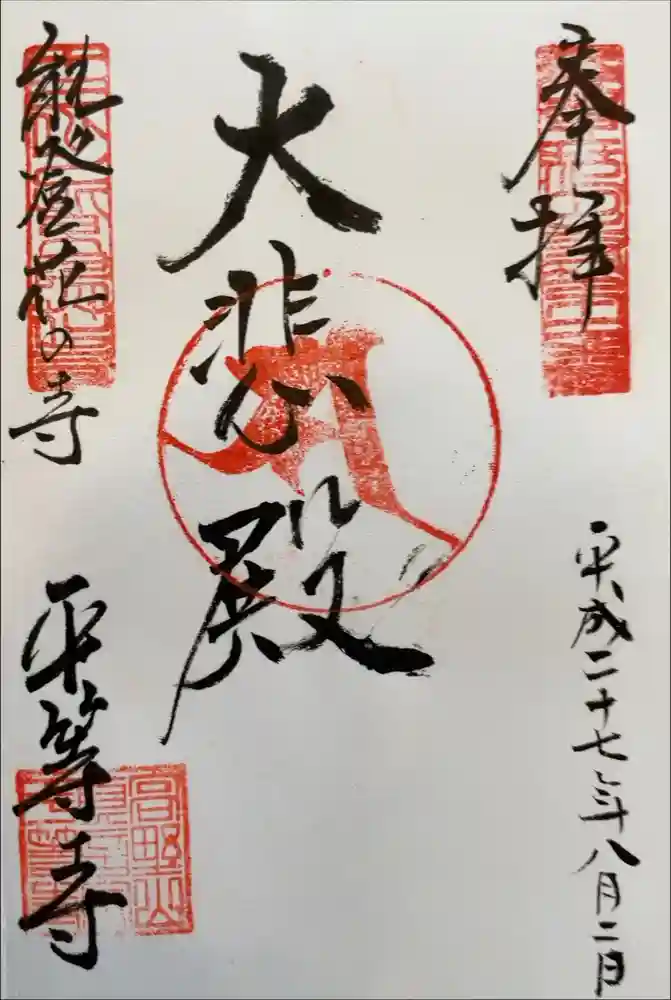 奉拝
平成二十七年八月二日
大悲殿
能登花の寺
平等寺
高野山